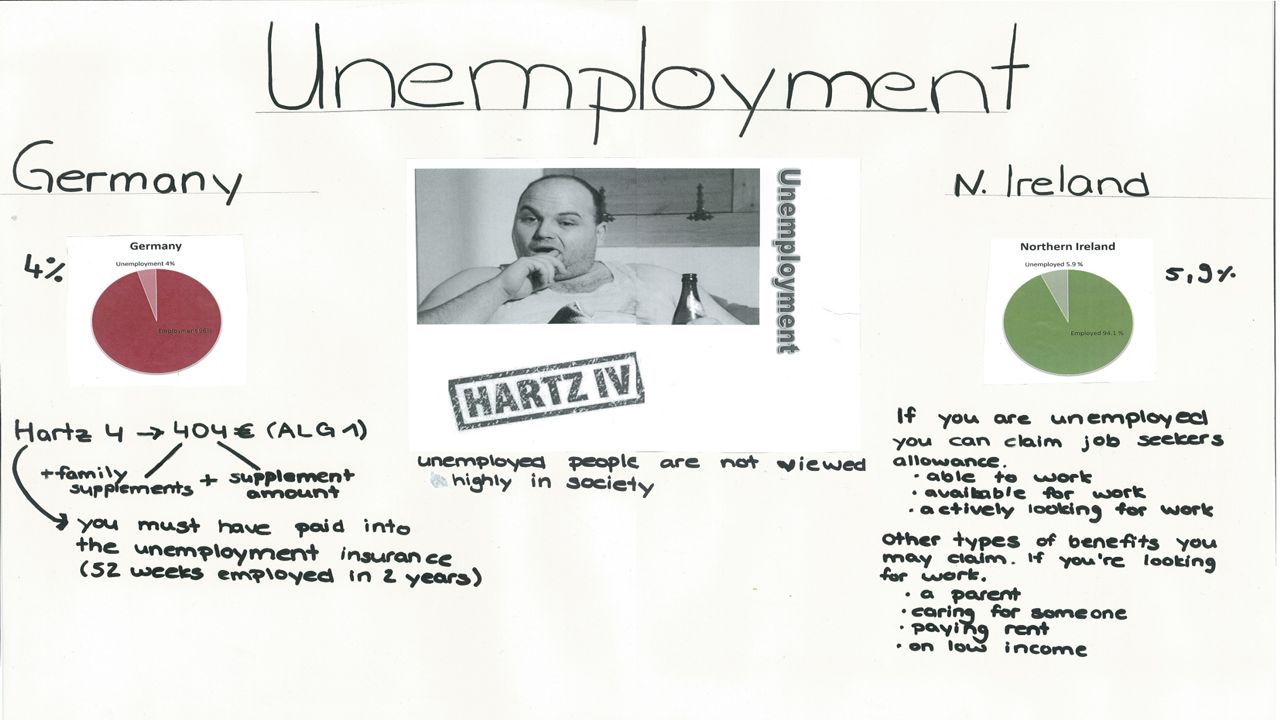 Unemployment
Germany
4%
Germany
Unemployment 4%
Employment 96%
Hartz 4 → 404 € (ALG 1)
+ family supplements
+ supplement amount
you must have paid into
the unemployment insurance
(52 weeks employed in 2 years)
Unemployment
HARTZ IV
unemployed people are not viewed
highly in society
N. Ireland
Northern Ireland
Unemployed 5.9 %
Employed 94.1 %
5,9%
If you are unemployed
you can claim job seekers
allowance.
• able to work
• available for work
• actively looking for work
other types of benefits you
may claim. If you're looking
for work.
• a parent
• caring for someone
• paying rent
• on low income